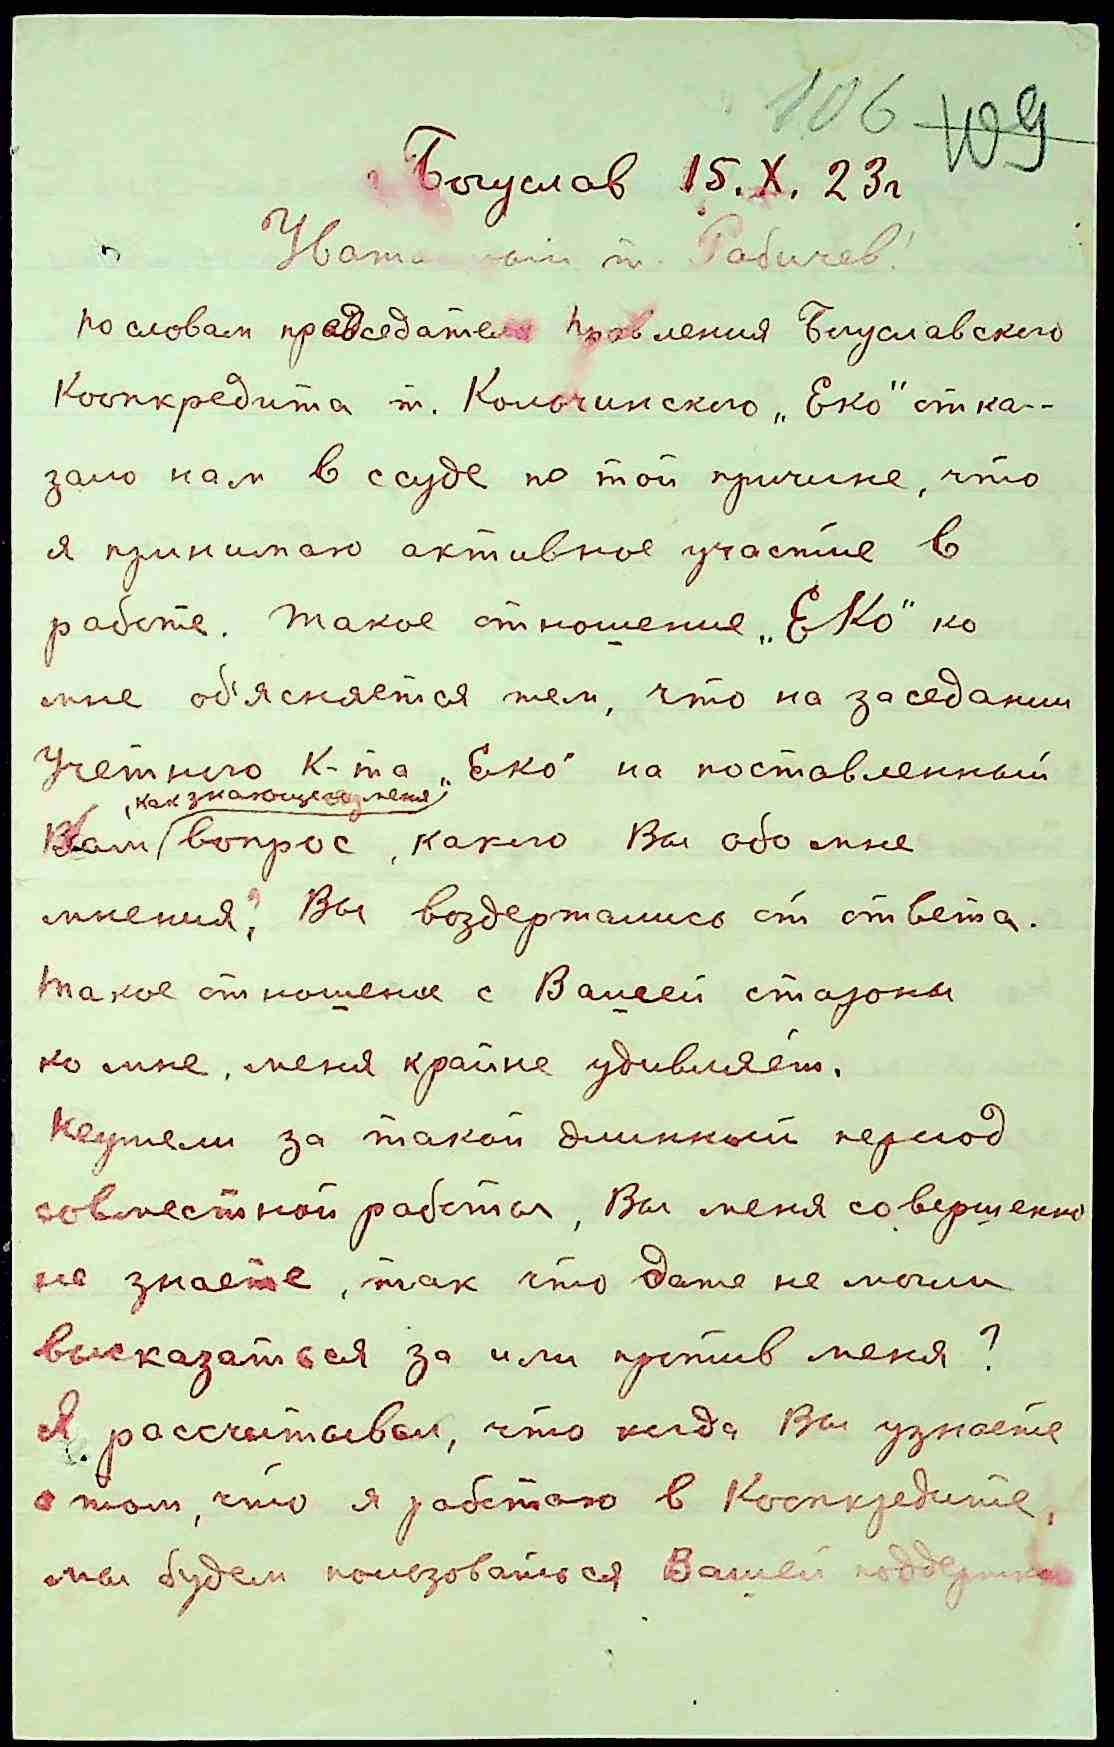 106 109
Богуслав 15.X.23г
Уважаемый т. Рабичев!
По словам председателя Правления Богуславского
Коопкредита т. Кольчинского „Еко" отка-
зало нам в ссуде по той причине, что
я принимаю активное участие в
работе. Такое отношение „ЕКо" ко
мне об'ясняется тем, что на заседании
Учетного К-та „Еко" на поставленный
, как знающего меня,
Вам вопрос, какого Вы обо мне
мнения, Вы воздержались от ответа.
Такое отношение с Вашей стороны
ко мне, меня крайне удивляет.
Неужели за такой длинный период
совместной работы, Вы меня совершенно
не знаете, так что даже не могли
высказаться за или против меня?
Я рассчитывал, что когда Вы узнаете
о том, что я работаю в Коопкредите,
мы будем пользоваться Вашей поддержкой